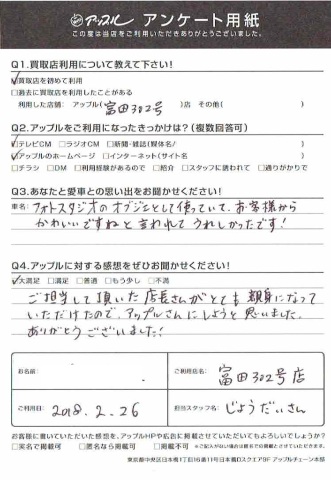 アップル アンケート用紙
この度は当店をご利用いただきありがとうございました。
Q1.買取店利用について教えて下さい!
☑買取店を初めて利用
□過去に買取店を利用したことがある
利用した店舗: アップル(富田302号)店 その他( )
Q2.アップルをご利用になったきっかけは?(複数回答可)
☑テレビCM □ラジオCM □新聞・雑誌(媒体名/ )
☑アップルのホームページ □インターネット(サイト名 )
□チラシ □DM □利用経験があるので □紹介 □スタッフに誘われて □通りがかりで
Q3.あなたと愛車との思い出をお聞かせください!
車名: フォトスタジオのオブジェとして使っていて、お客様から
かわいいですねと言われてうれしかったです!
Q4.アップルに対する感想をぜひお聞かせください!
☑大満足 □満足 □普通 □もう少し □不満
ご担当して頂いた店長さんがとても親身になって
いただけたので、アップルさんにしようと思いました。
ありがとうございました!
お名前 ご利用店名: 富田302号店
ご利用日 2018.2.26 担当スタッフ名: じょうだいさん
お客様に書いていただいた感想を、アップルHPや広告に掲載させていただいてもよろしいでしょうか?
□実名で掲載可 □匿名なら掲載可 □掲載不可 ※ご記入がない場合は匿名での掲載とさせていただきます。
東京都中央区日本橋1丁目16番11号日本橋Dスクエア9F アップルチェーン本部